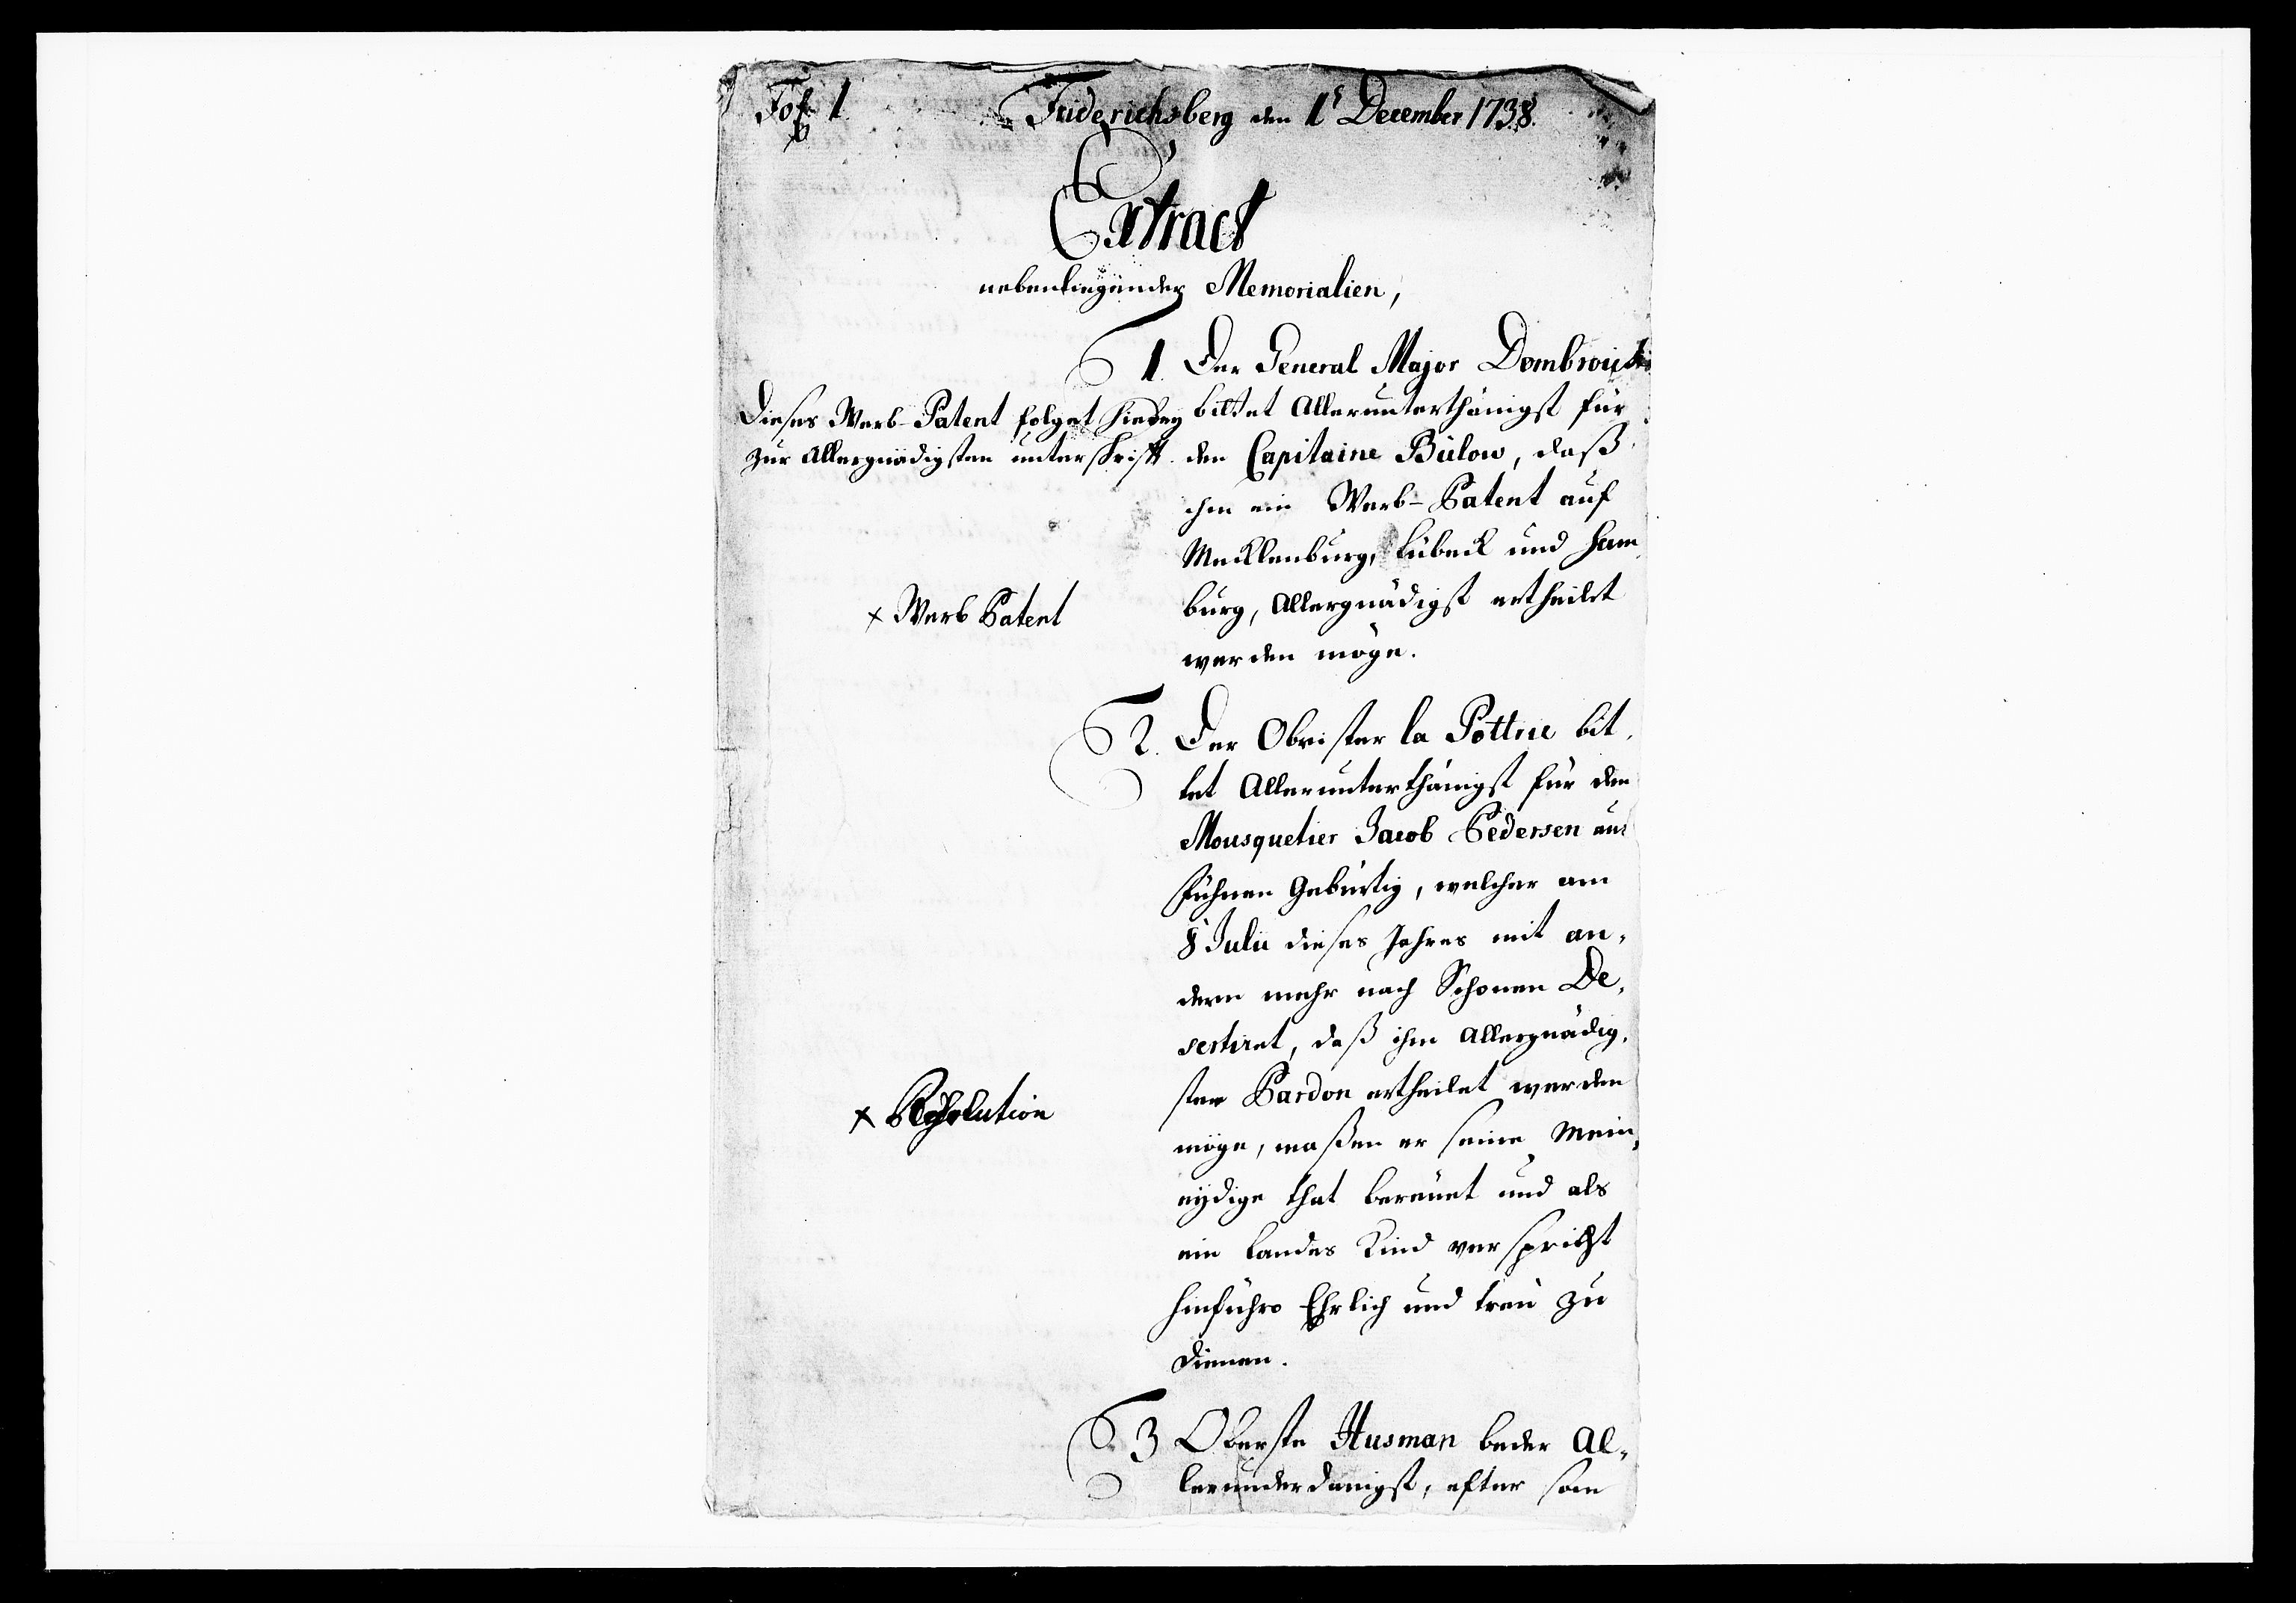 Fol 1
Friderichsberg den 1' December 1738.
Extract
nebenliegender Memorialien,
1. Der General Major Dombroicki
bittet Allerunterthänigst für
den Capitaine Bülow, daß
ihm ein Werb-Patent auf
Mecklenburg, Lübeck und Ham,
burg, Allergnädigst ertheilet
werden möge.
Dieses Werb-Patent folget hiebey
zur Allergnädigsten unterschrifft.
+ Werb Patent
2. Der Obrister la Pottrie bit,
tet Allerunterthänigst für den
Mousquetier Jacob Pedersen aus
Fühnen Gebürtig, welcher am
8 Julii dieses Jahres mit an,
dern mehr nach Schonen De,
sertiret, daß ihm Allergnädig,
ster Pardon ertheilet werden
möge, maßen er seine Mein,
eydige that bereuet und als
ein Landes Kind verspricht
hinführo Ehrlich und treu zu
dienen.
+ Resolution
3 Oberste Husman beder Al,
lerunderdanigst, efter som